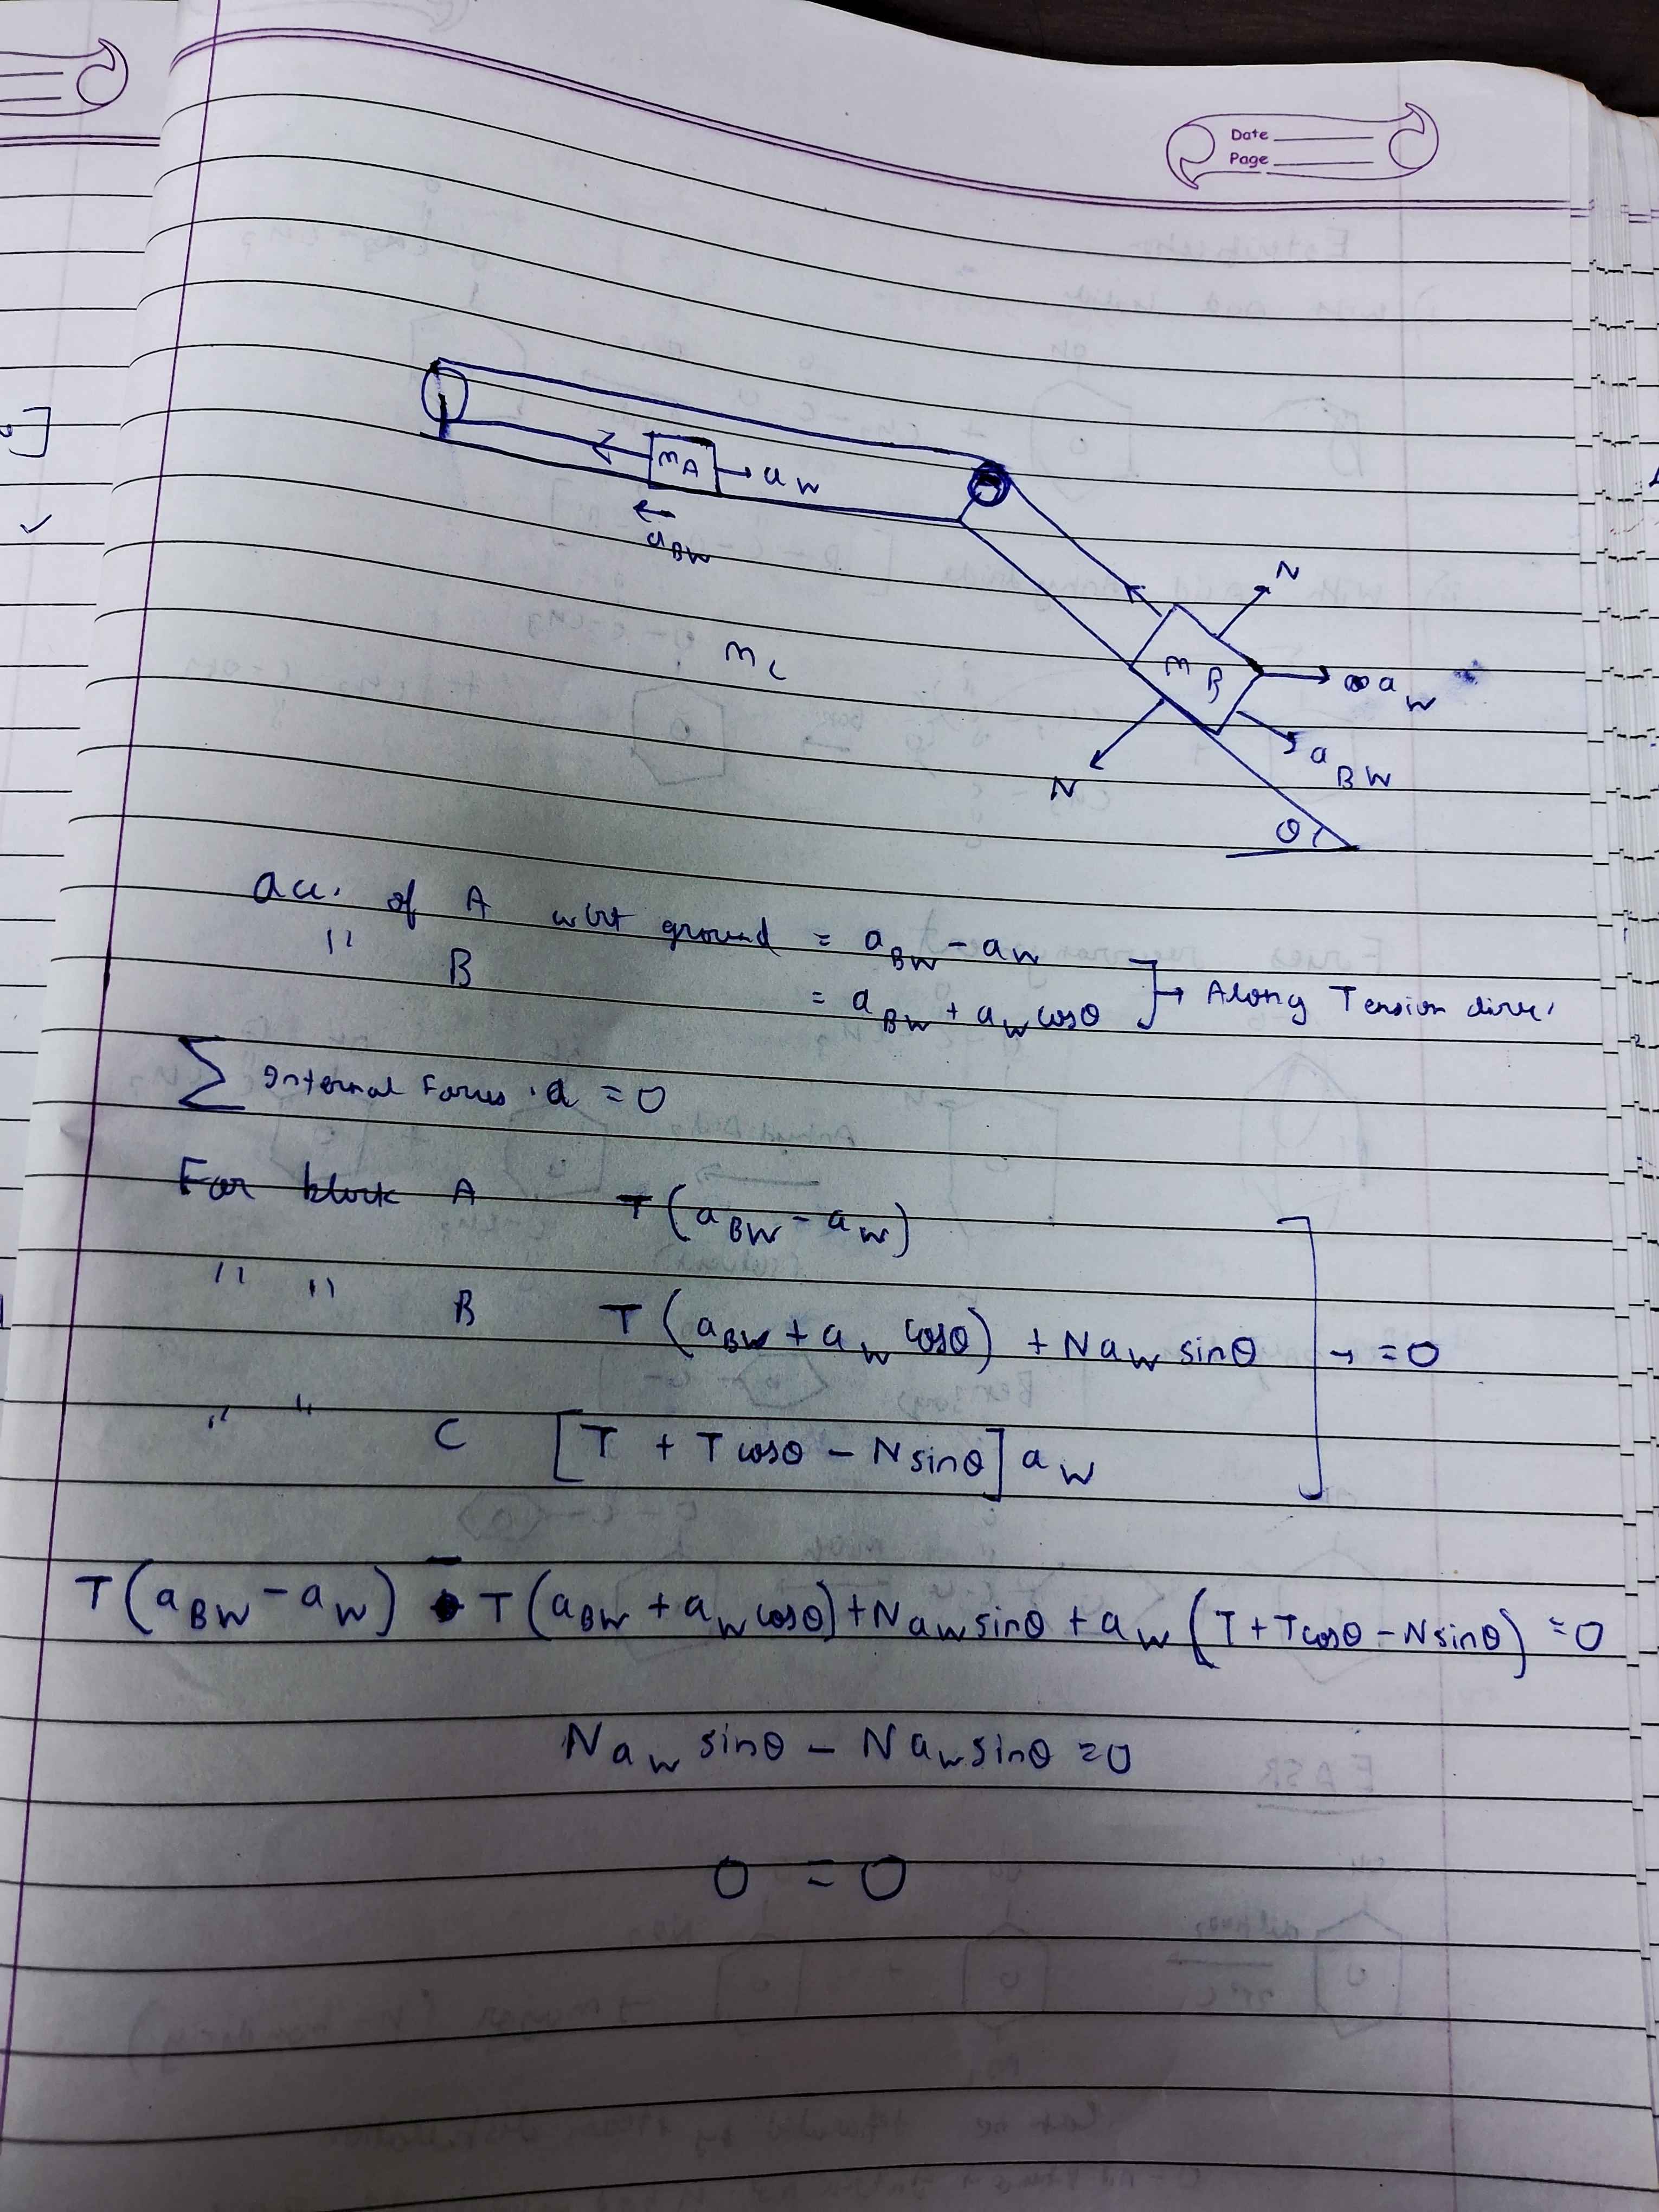 Date
Page
m_A → a_W
←
a_BW
N
m_C
m_B
a_W
a_BW
N
θ
acc. of A wrt ground = a_BW - a_W
" B = a_BW + a_W cosθ ] → Along Tension direc.
∑ Internal Forces . a = 0
For block A T(a_BW - a_W)
" " B T(a_BW + a_W cosθ) + N a_W sinθ → = 0
" " C [T + T cosθ - N sinθ] a_W
T(a_BW - a_W) - T(a_BW + a_W cosθ) + N a_W sinθ + a_W (T + T cosθ - N sinθ) = 0
N a_W sinθ - N a_W sinθ = 0
0 = 0